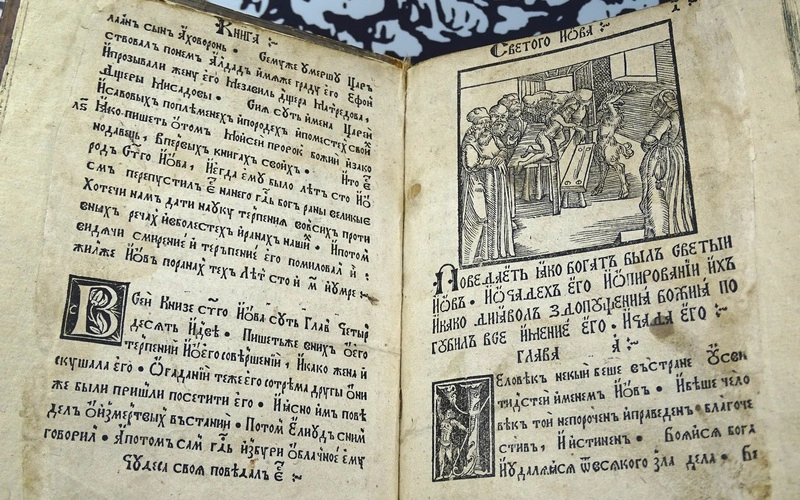 Книга :~
лаин сынъ Аховоронь • Семуже умершу Царъ
ствовал понем Алдад имяже граду его Ефои
Ипрозывали жену его Мезавиль дщера Матредова,
Дщеры Мисадовы • Сия суть имена Царей
Исавовыхъ поплеменех ипородех ипоместех своих
Яко пишеть отом Моисеи пророк божии изако
нодавець, Впервыхъ книгахъ своихъ • Ито е
род ст҃го Иѡва, Иегда ему было лѣтъ сто Иѡ
семъ перепустилъ е нанего га҃ь богъ раны великые
Хотечи нам дати науку терпения вовсихъ проти
вныхъ речах иѵболестехъ иранахъ наших • Ипотом
видячи смирение и терьпение его помиловал и :
жилже Иѡвъ поранах техъ Лѣт сто и м҃ иумре :~
Всеи Книзе ст҃го Иѡва суть Глав Четыр
десять Идве • Пишетьже вних ѻего
терпении Иѻего совершении, Икако жена и
скушала его • Огадании теже его сотрема другы ѻни
же были пришли посетити его • Иясно имъ пове
дел ѻизмертвых въстании • Потом Елиудъ с ним
говорил • Апотом сам га҃ь избури облачное ему
Чудеса своя поведалъ е :~
Светого Иѡва :~
Поведаеть яко богатъ былъ светыи
Иѡвъ • Иѻчадехъ его Иѻпировании ихъ
Икако диявол здопущения божия по
губилъ все имение его • Ичада его :~
ГЛАВА А҃ :~
Человекъ некыи беше въстране Усви
тидстеи именем Иѡвъ • Ивеше чело
векъ той непорочен иправеден • благоче
стивъ, Иистинен • Бояися бога
Иудаляися ѿвсякого зла дела • Бе